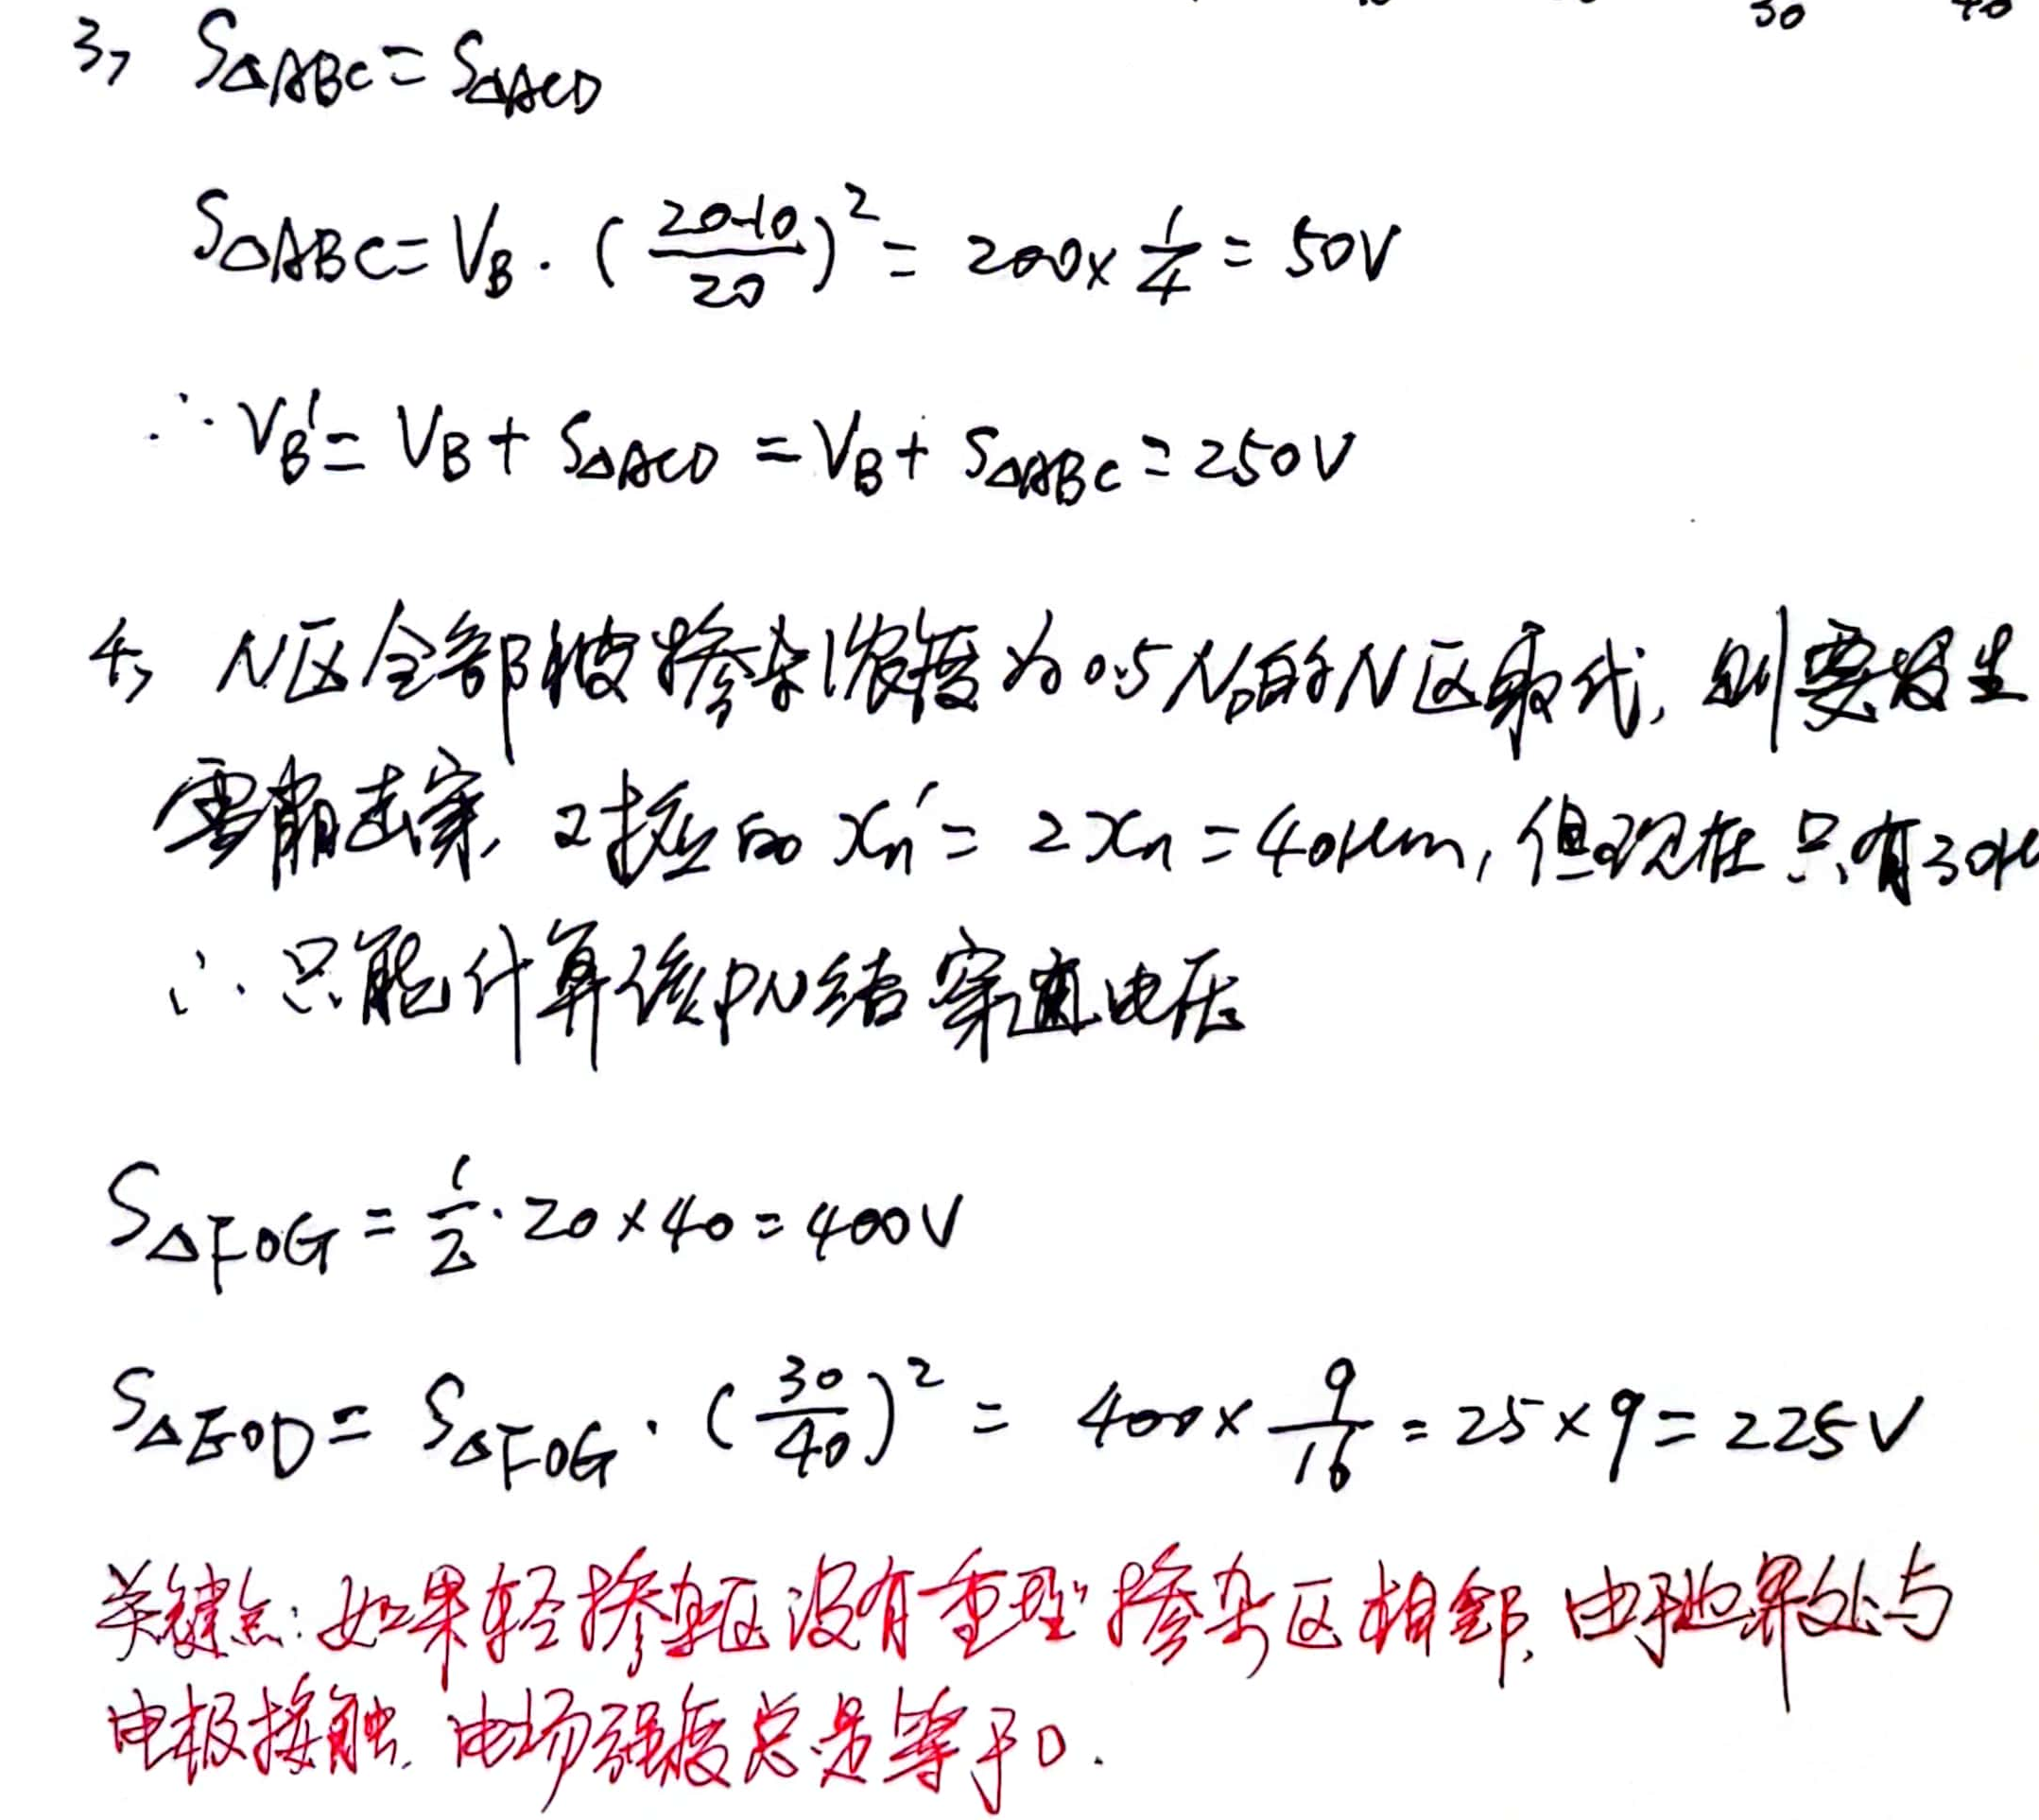 30
3, S△ABC = S△ACD
S△ABC = VB · (20-10/20)² = 200 × 1/4 = 50V
∴ VB' = VB + S△ACD = VB + S△ABC = 250V
4, N区全部被掺杂浓度为0.5ND的N区取代, 则要发生
雪崩击穿, 对应的 xn' = 2xn = 40μm, 但现在只有30μ
∴ 只能计算该PN结穿通电压
S△FOG = 1/2 · 20 × 40 = 400V
S△EOD = S△FOG · (30/40)² = 400 × 9/16 = 25 × 9 = 225V
关键点: 如果轻掺杂区没有重型掺杂区相邻, 由于边界处与
电极接触, 电场强度总是等于0.